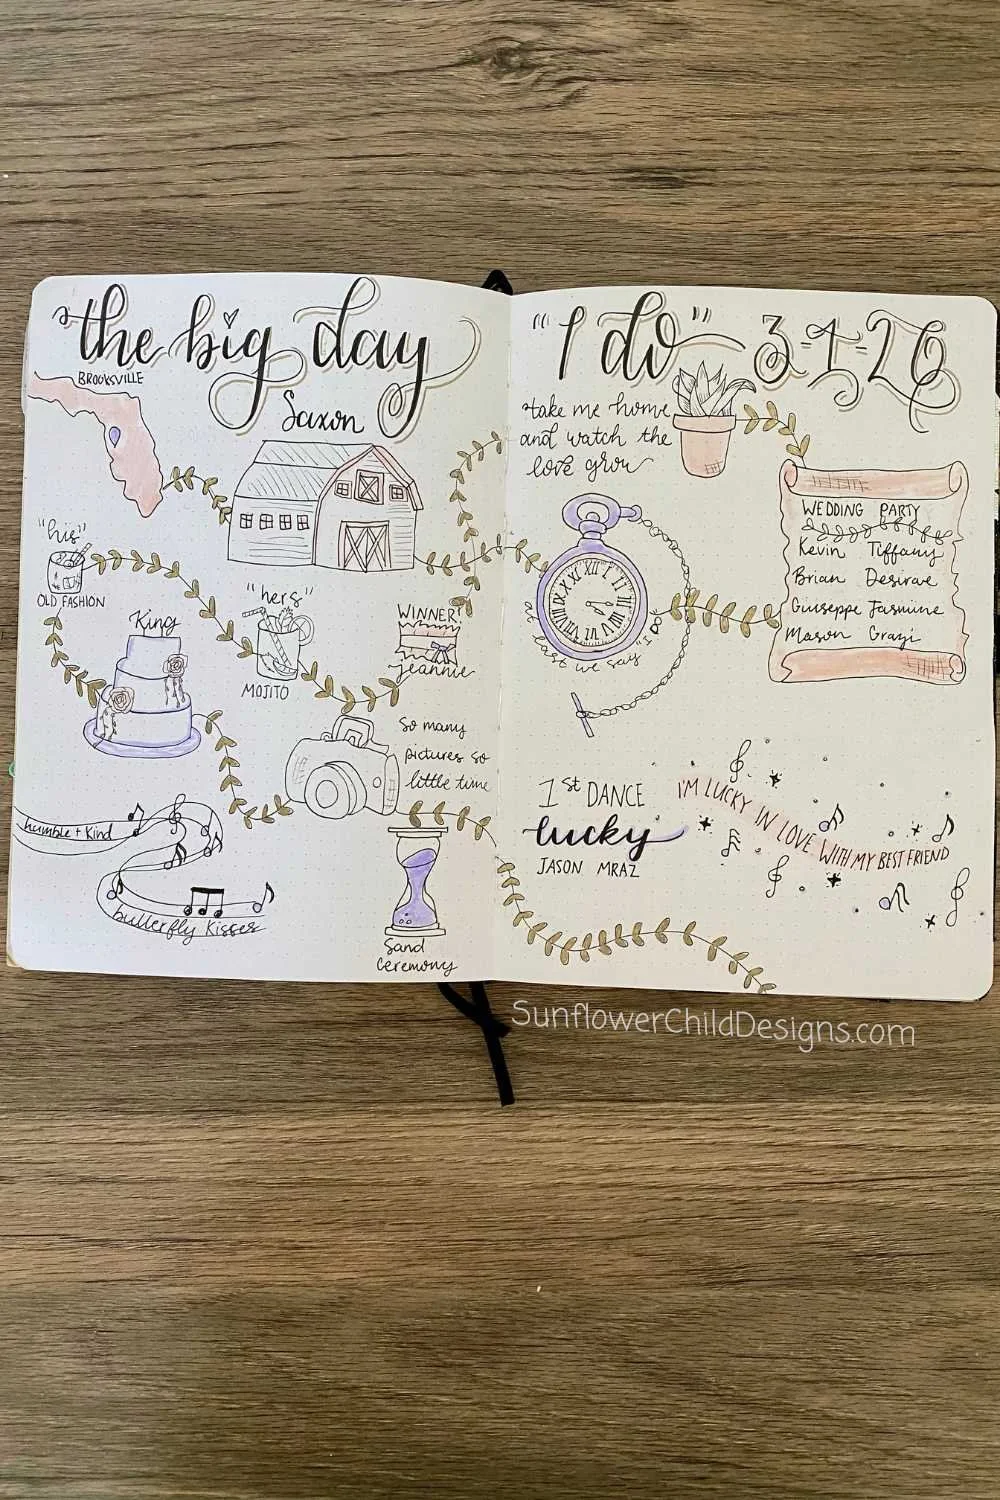 the big day
BROOKSVILLE
Saxon
"his"
OLD FASHION
"hers"
MOJITO
WINNER!
jeannie
King
So many
pictures so
little time
humble + Kind
butterfly Kisses
Sand
Ceremony
"I do" 3-1-20
take me home
and watch the
love grow
XII I II III IV V VI VII VIII IX X XI
at last we say "I Do"
WEDDING PARTY
Kevin Tiffany
Brian Desirae
Giuseppe Jasmine
Mason Grayi
1st DANCE
lucky
JASON MRAZ
I'M LUCKY IN LOVE WITH MY BEST FRIEND
SunflowerChildDesigns.com